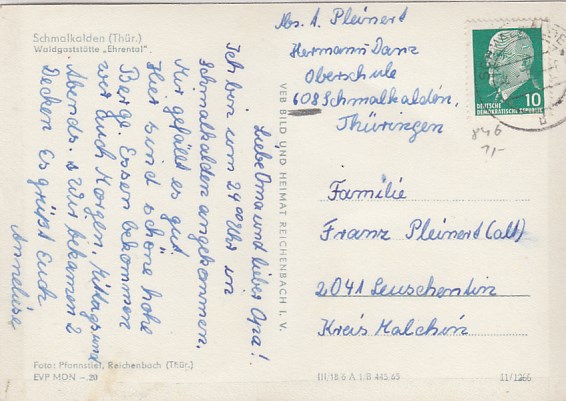 Schmalkalden (Thür.)
Waldgaststätte „Ehrental"
Liebe Oma und lieber Opa!
Ich bin um 24 00 Uhr in
Schmalkalden angekommen.
Mir gefällt es gut.
Hier sind schöne hohe
Berge. Essen bekommen
wir Euch Morgen, Mittags und
Abends. Wir bekamen 2
Decken Es grüßt Euch
Anneliese
Foto: Pfannstiel, Reichenbach (Thür.)
EVP MDN –.20
VEB BILD UND HEIMAT REICHENBACH I. V.
Abs. A. Pleinert
Hermann Danz
Oberschule
608 Schmalkalden,
Thüringen
10
DEUTSCHE
DEMOKRATISCHE REPUBLIK
846
Familie
Franz Pleinert (alt)
2041 Leuschentin
Kreis Malchin
III/18 6 A 1 B 445 65
11/1266